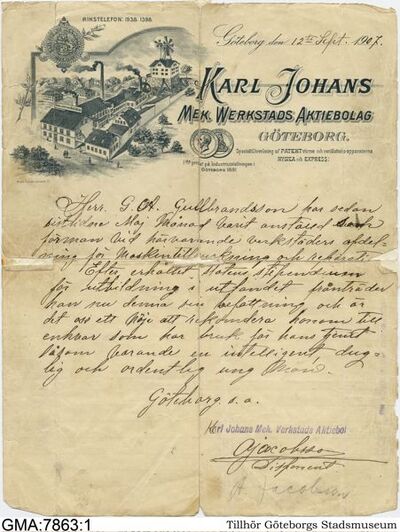 RIKSTELEFON: 1938. 1398.
Göteborg den 12te Sept. 1907.
KARL JOHANS
MEK. WERKSTADS AKTIEBOLAG
GÖTEBORG.
Specialtillverkning af PATENT värme och ventilations-apparaterna
HYGEA och EXPRESS.
I:sta priset på Industriutställningen i
GÖTEBORG 1891
Herr G. A. Gullbrandsson har sedan
Maj Månad varit anstäld som
förman vid härvarande verkstäders afdel-
ning för Maskintillverkning och
Efter erhållet Statens stipendium
för utbildning i utlandet frånträder
han nu denna sin befattning och är
det oss ett nöje att rekomdera honom till
enhvar som har bruk för hans tjenst
såsom varande en intelligent, dug-
lig och ordentlig ung Man.
Göteborg s. a.
Karl Johans Mek. Verkstads Aktiebol
A Jacobsson
Disponent
A Jacobsson
GMA:7863:1
Tillhör Göteborgs Stadsmuseum